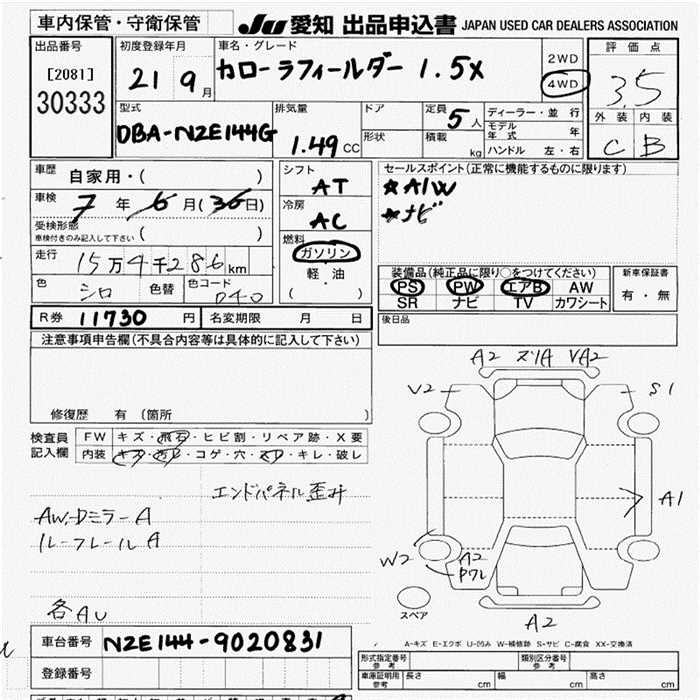 車内保管・守衛保管
JU 愛知 出品申込書 JAPAN USED CAR DEALERS ASSOCIATION
出品番号
[2081]
30333
初度登録年月
21 9月
車名・グレード
カローラフィールダー 1.5X
2WD
4WD
評価点
3.5
外装 内装
C B
型式
DBA-NZE144G
排気量
1.49 CC
ドア
形状
定員 5人
積載 kg
ディーラー・並行
モデル年式 年
ハンドル 左・右
車歴 自家用・( )
車検 7年 6月(30日)
受検形態
車検付きのみ記入して下さい ( )
走行 15万4千286km
色 シロ 色替 色コード 040
シフト
AT
冷房
AC
燃料
ガソリン
軽・油
( )
セールスポイント(正常に機能するものに限ります)
★A/W
★ナビ
装備品(純正品に限り○をつけてください)
PS PW エアB AW
SR ナビ TV カワシート
新車保証書
有・無
R券 11730 円 名変期限 月 日
後日品
注意事項申告欄(不具合内容等は具体的に記入して下さい)
修復歴 有(箇所 )
検査員記入欄
FW キズ・飛石・ヒビ割・リペア跡・X要
内装 キズ・汚レ・コゲ・穴・スレ・キレ・破レ
エンドパネル歪み
AW,Dミラー A
ルーフレール A
各AU
A2 ズリA VA2
V2
S1
A1
W2
A2
Pワレ
スペア
A2
A-キズ E-エクボ U-凹み W-補修跡 S-サビ C-腐食 XX-交換済
車台番号 NZE144-9020831
登録番号
形式指定番号 参考
類別区分番号 参考
車庫証明用 参考 長さ cm 幅 cm 高さ cm